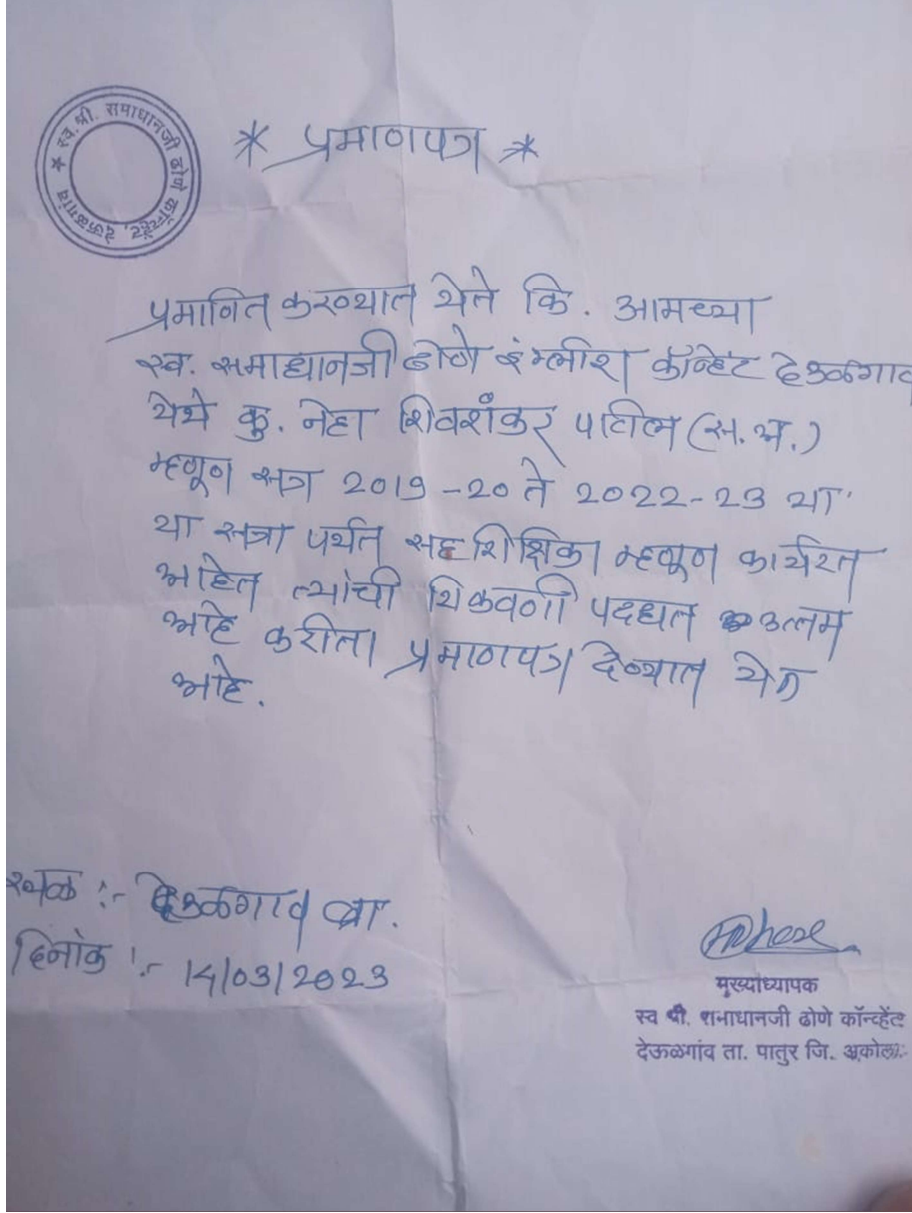 स्व. श्री. समाधानजी ढोणे कॉन्व्हेंट, देऊळगांव
* प्रमाणपत्र *
प्रमाणित करण्यात येते कि. आमच्या
स्व. समाधानजी ढोणे इंग्लीश कॉन्हेट देऊळगाव
येथे कु. नेहा शिवशंकर पाटील (स.अ.)
म्हणून सत्र 2019-20 ते 2022-23 या
या सत्रा पर्यंत सह शिक्षिका म्हणूण कार्यरत
आहेत त्यांची शिकवणी पदधत उत्तम
आहे करीता प्रमाणपत्र देण्यात येत
आहे.
स्थळ :- देऊळगाव
दिनांक :- 14/03/2023
मुख्याध्यापक
स्व श्री. समाधानजी ढोणे कॉन्व्हेंट
देऊळगांव ता. पातुर जि. अकोला.